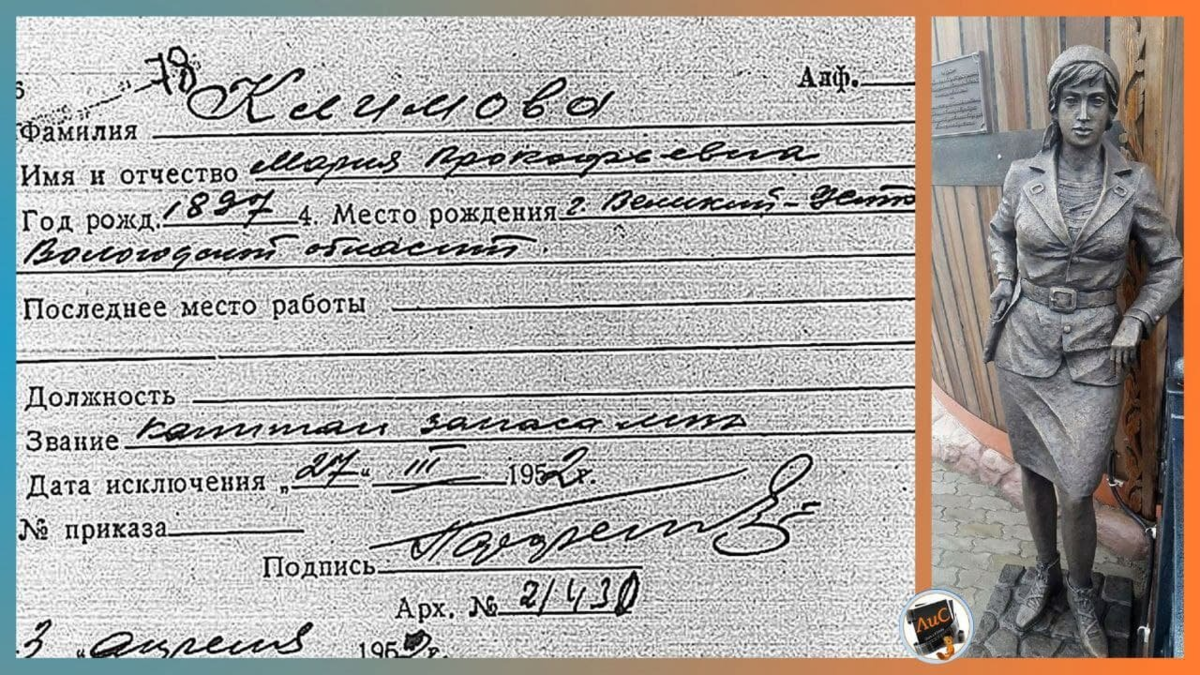 78
6
Алф.
Фамилия Климова
Имя и отчество Мария Прокофьевна
Год рожд. 1897 4. Место рождения г. Великий-Устю
Вологодской области.
Последнее место работы
Должность
Звание капитан запаса
Дата исключения „27“ III 1952г.
№ приказа
Подпись
Арх. № 2/430
3 "апреля 195 г.
ЛиС